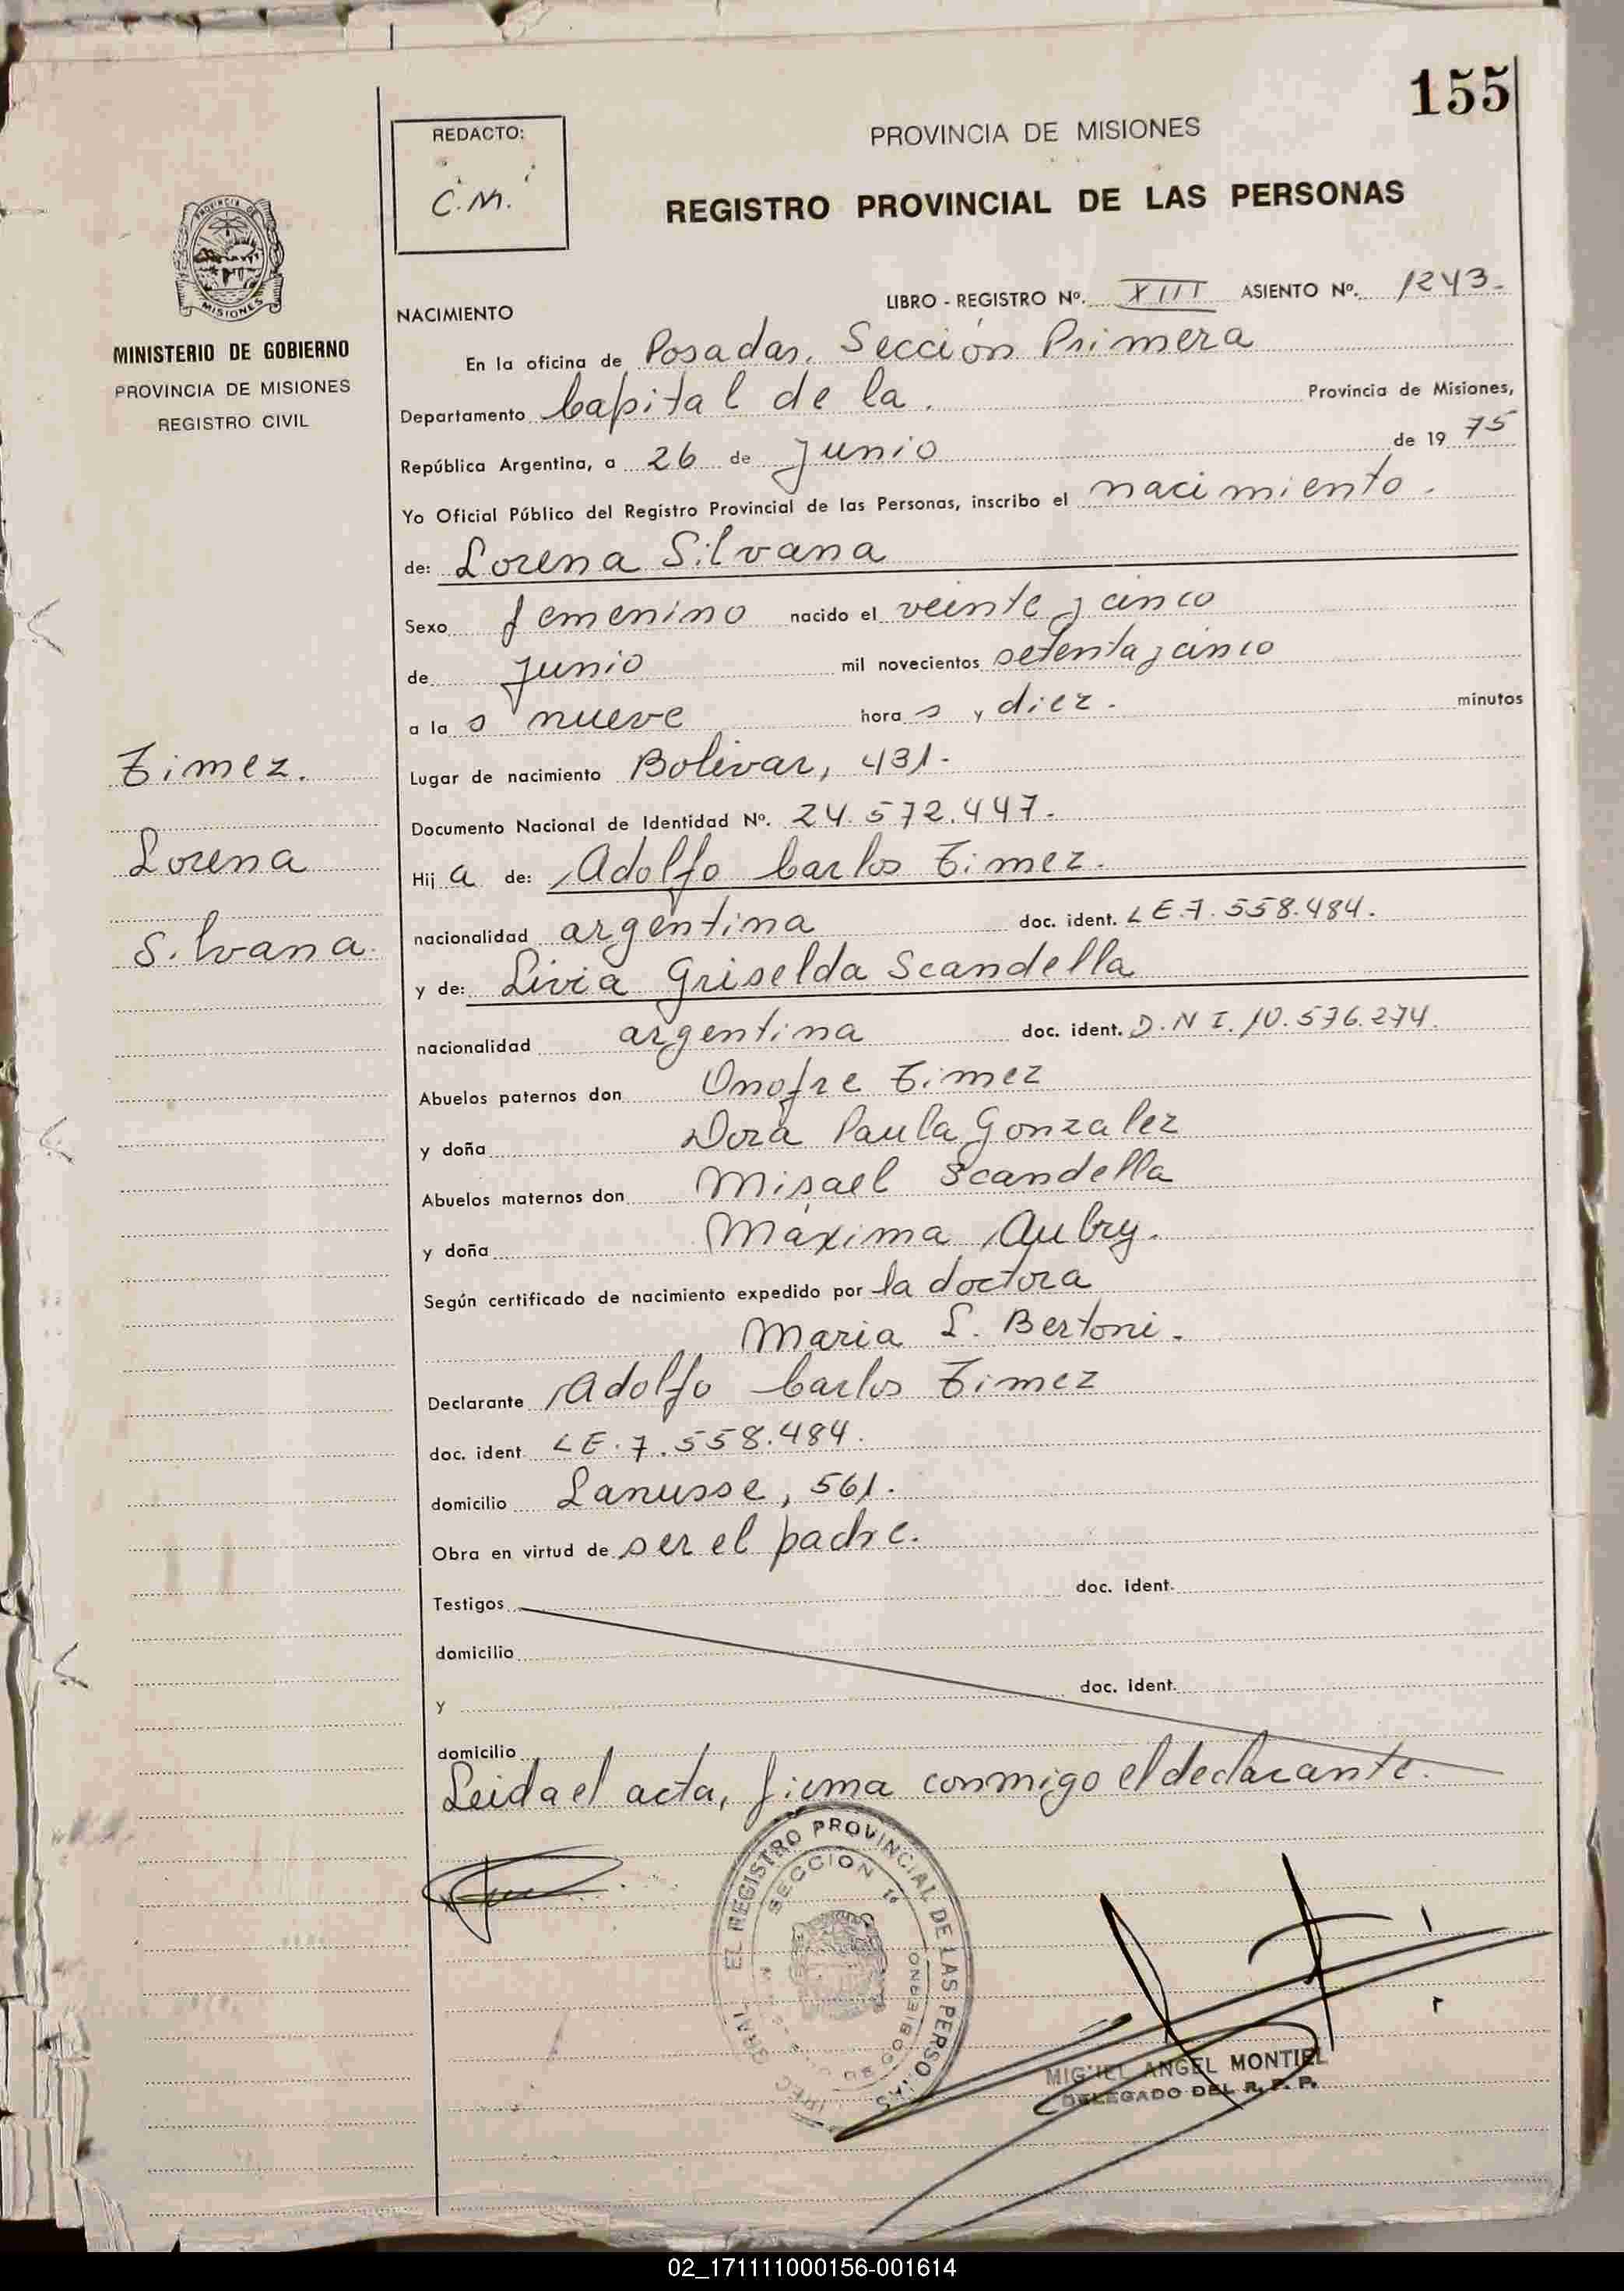 155
REDACTO:
C.M.
PROVINCIA DE MISIONES
REGISTRO PROVINCIAL DE LAS PERSONAS
MISIONES
MINISTERIO DE GOBIERNO
PROVINCIA DE MISIONES
REGISTRO CIVIL
LIBRO - REGISTRO Nº. XIII ASIENTO Nº. 1243.
NACIMIENTO
En la oficina de Posadas, Sección Primera
Departamento Capital de la. Provincia de Misiones,
República Argentina, a 26 de Junio de 1975
Yo Oficial Público del Registro Provincial de las Personas, inscribo el nacimiento.
de: Lorena Silvana
Sexo femenino nacido el veinte y cinco
de Junio mil novecientos setenta y cinco
a la s nueve hora s y diez. minutos
Timez.
Lorena
Silvana.
Lugar de nacimiento Bolivar, 431.
Documento Nacional de Identidad Nº. 24.572.447.
Hij a de: Adolfo Carlos Timez.
nacionalidad argentina doc. ident. LE.7.558.484.
y de: Livia Griselda Scandella
nacionalidad argentina doc. ident. D.N I. 10.576.274.
Abuelos paternos don Onofre Timez
y doña Dora Paula Gonzalez
Abuelos maternos don Misael Scandella
y doña Máxima Aubry.
Según certificado de nacimiento expedido por la doctora
Maria L. Bertoni.
Declarante Adolfo Carlos Timez
doc. ident. LE.7.558.484.
domicilio Lanusse, 561.
Obra en virtud de ser el padre.
Testigos doc. ident.
domicilio
y doc. ident.
domicilio
Leida el acta, firma conmigo el declarante.
EL REGISTRO PROVINCIAL DE LAS PERSONAS
SECCION 1ª
GOBIERNO
MIGUEL ANGEL MONTIEL
DELEGADO DEL R. P. P.
02_171111000156-001614